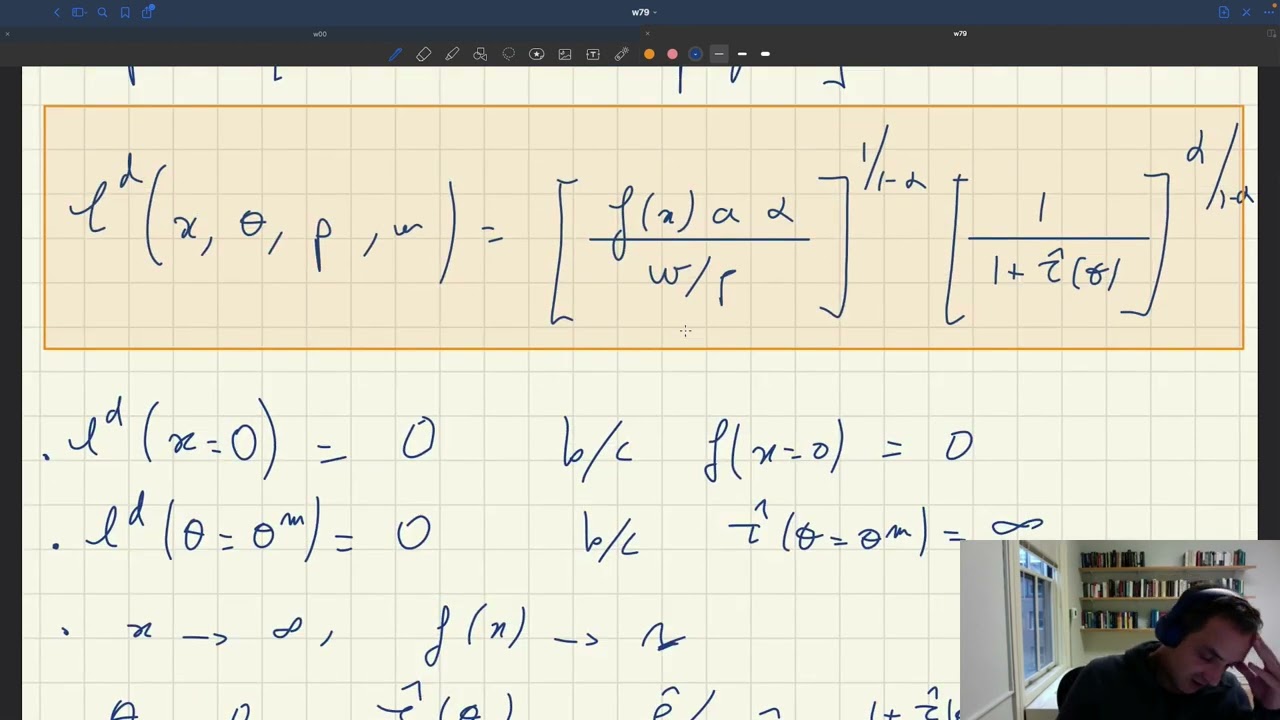 w79
w00
w79
l^d (x, θ, p, w) = [f(x) a α / w/p]^{1/1-α} [1 / 1+τ̂(θ)]^{α/1-α}
. l^d (x=0) = 0 b/c f(x=0) = 0
. l^d (θ=θ^m) = 0 b/c τ̂(θ=θ^m) = ∞
. x → ∞, f(x) →